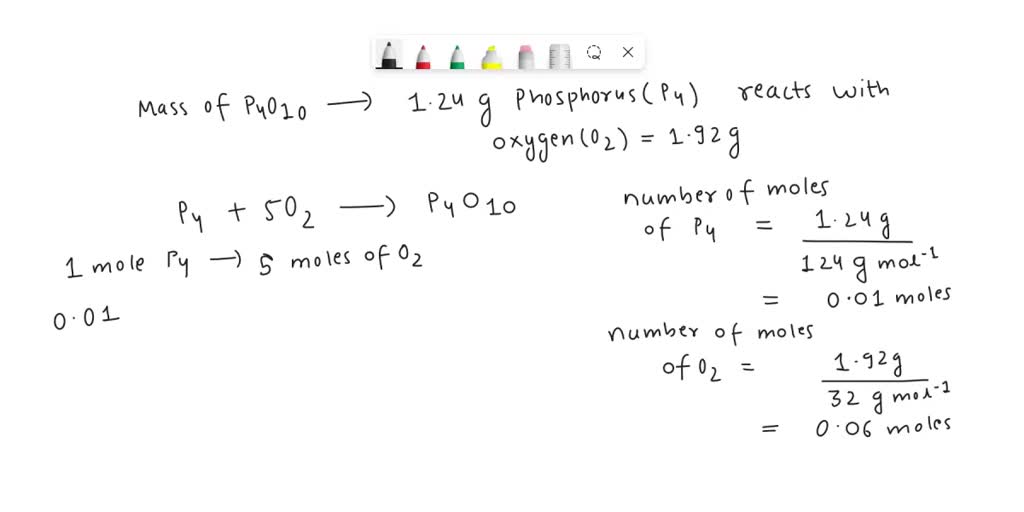 Mass of P4O10 → 1.24 g Phosphorus(P4) reacts with
oxygen(O2) = 1.92g
P4 + 5O2 → P4O10
1 mole P4 → 5 moles of O2
0.01
number of moles
of P4 = 1.24g
124 g mol-1
= 0.01 moles
number of moles
of O2 = 1.92g
32 g mol-1
= 0.06 moles